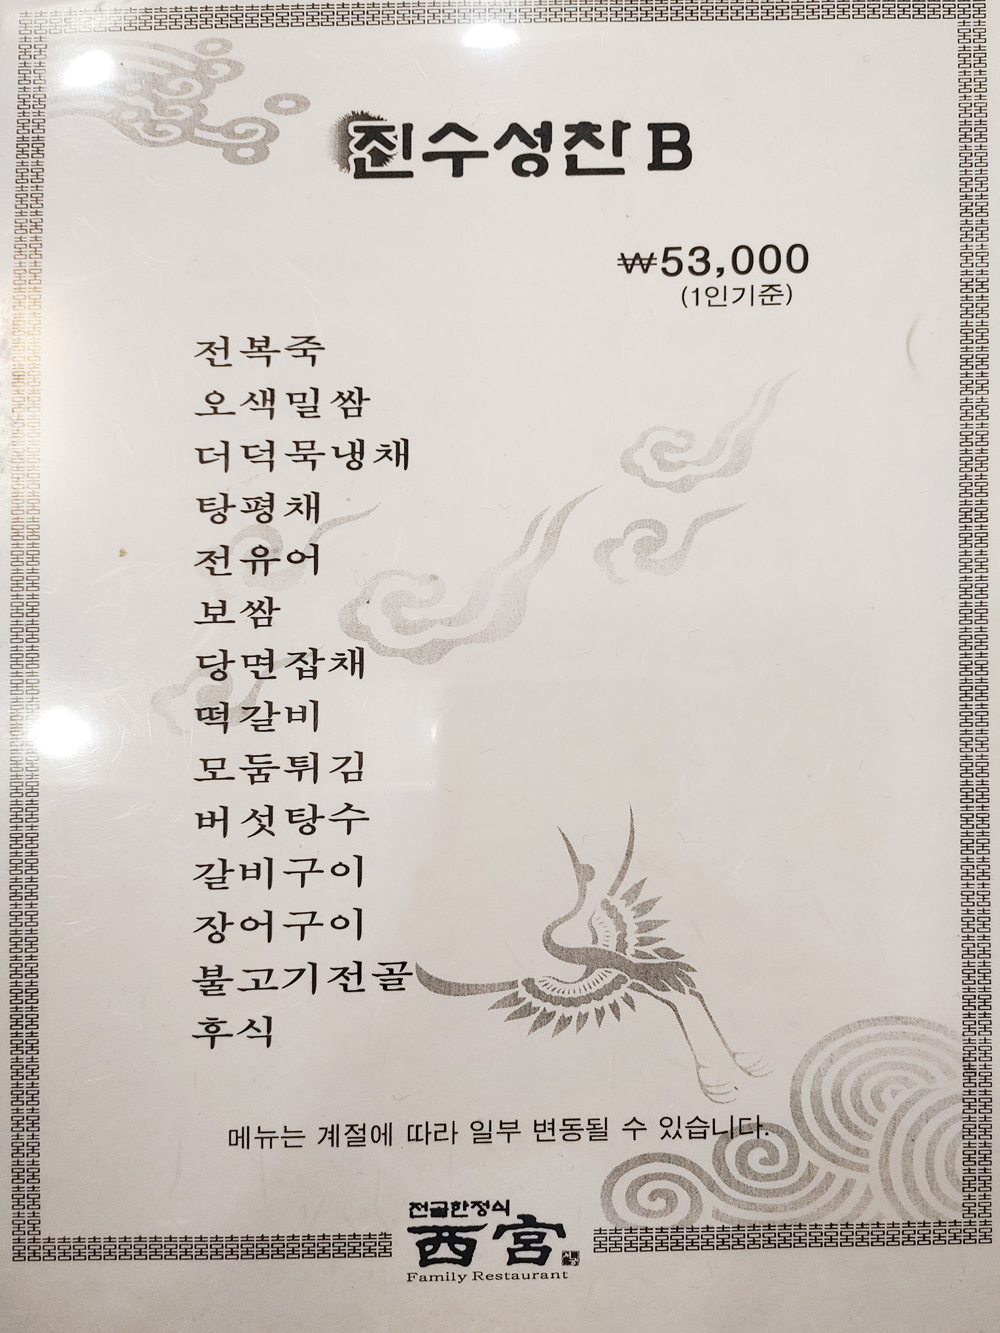 진수성찬 B
₩53,000
(1인기준)
전복죽
오색밀쌈
더덕묵냉채
탕평채
전유어
보쌈
당면잡채
떡갈비
모둠튀김
버섯탕수
갈비구이
장어구이
불고기전골
후식
메뉴는 계절에 따라 일부 변동될 수 있습니다.
전골한정식
西宮
Family Restaurant